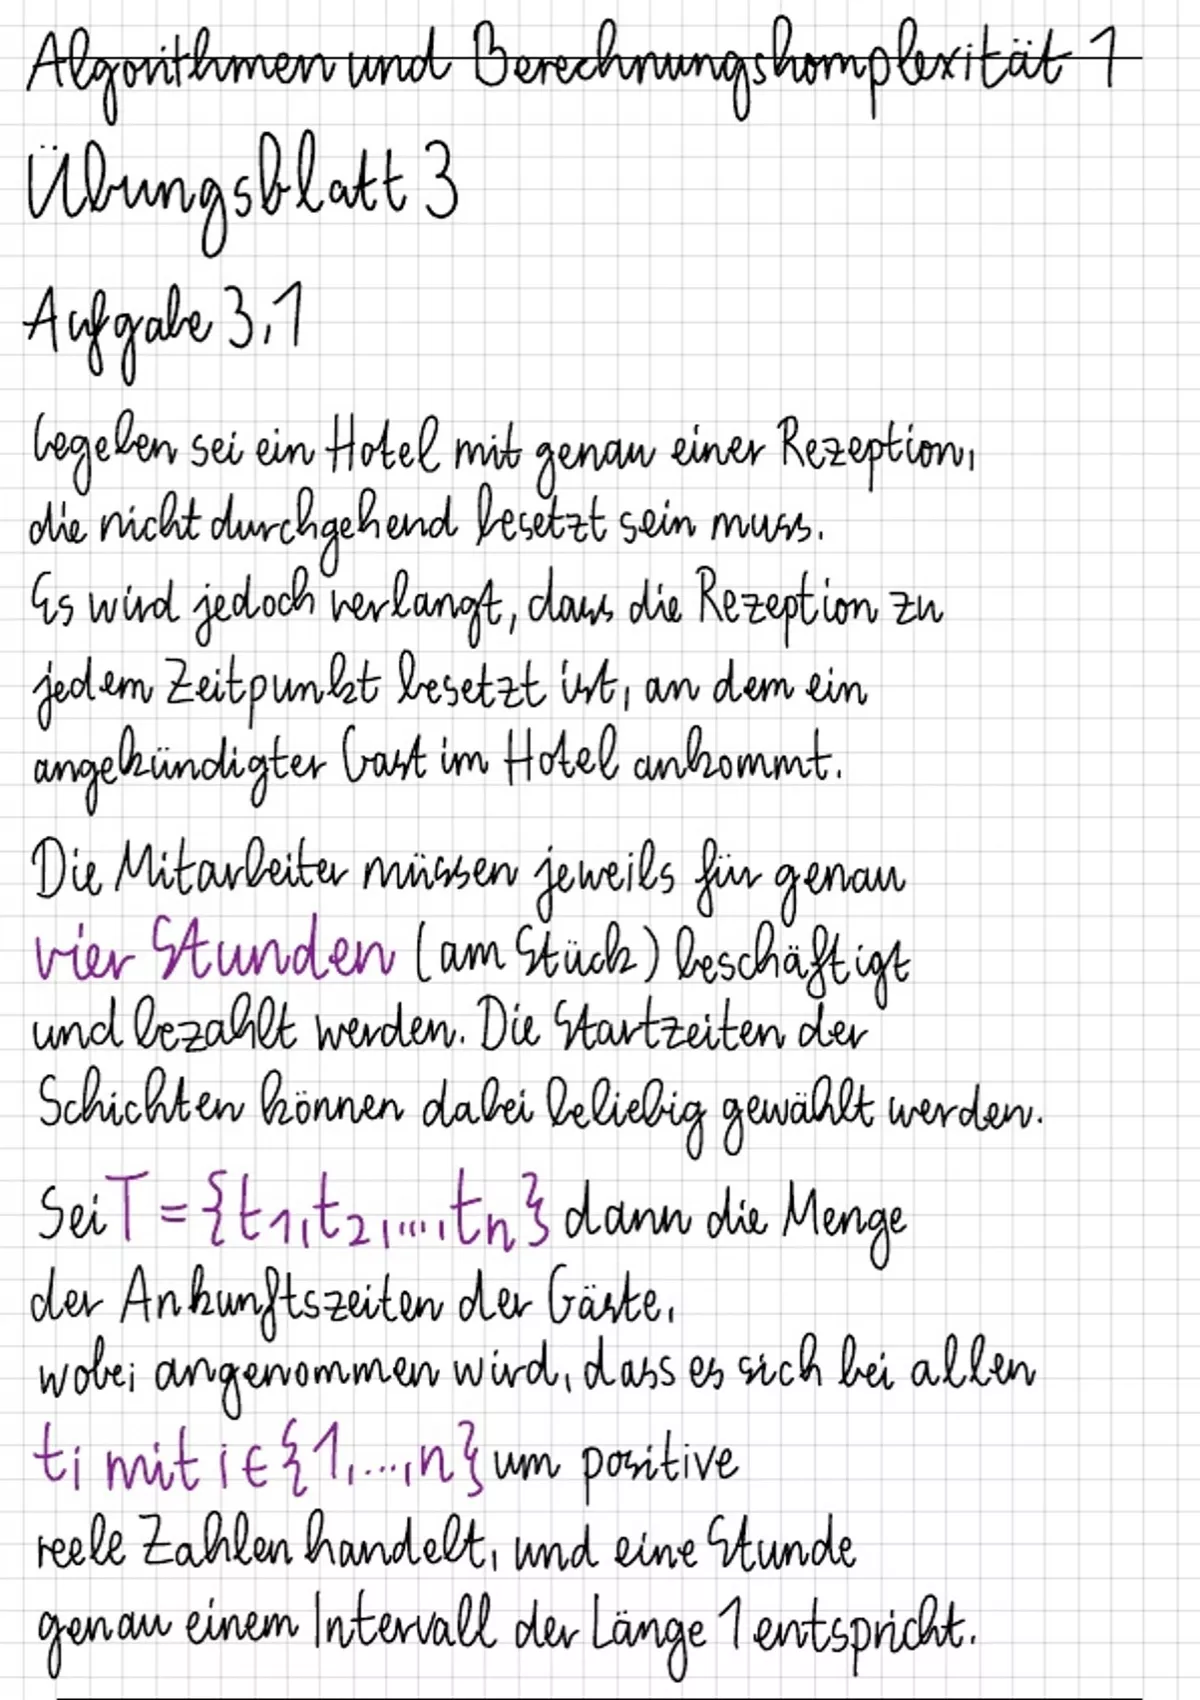 Algorithmen und Berechnungskomplexität 1
Übungsblatt 3
Aufgabe 3,1
Gegeben sei ein Hotel mit genau einer Rezeption,
die nicht durchgehend besetzt sein muss.
Es wird jedoch verlangt, dass die Rezeption zu
jedem Zeitpunkt besetzt ist, an dem ein
angekündigter Gast im Hotel ankommt.
Die Mitarbeiter müssen jeweils für genau
vier Stunden (am Stück) beschäftigt
und bezahlt werden. Die Startzeiten der
Schichten können dabei beliebig gewählt werden.
Sei T = {t1,t2,...,tn} dann die Menge
der Ankunftszeiten der Gäste,
wobei angenommen wird, dass es sich bei allen
ti mit i ∈ {1,...,n} um positive
reele Zahlen handelt, und eine Stunde
genau einem Intervall der Länge 1 entspricht.